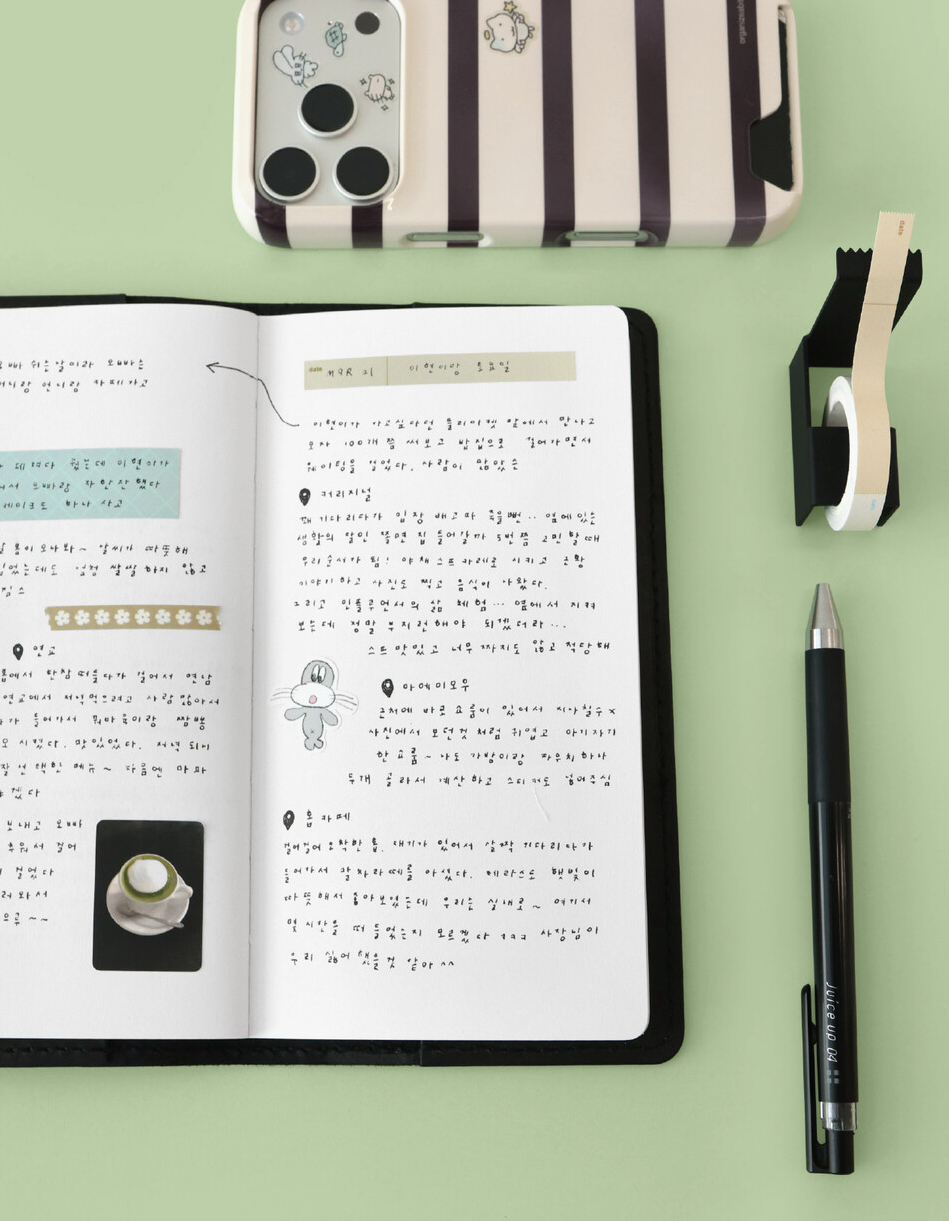 organized
date
쉬는날이라 오빠는
언니랑 카페가고
웠는데 이현이가
오빠랑 자 한잔했다
하나 사고
봄이 오나봐~ 날씨가 따뜻해
있었는데도 엄청 쌀쌀 하지 않고
연교
에서 한참 떠들다가 걸어서 연남
연교에서 저녁먹으려고 사람많아서
가 들어가서 짬뽕
시켰다. 맛있었다. 저녁 되니
잘 선택한 메뉴~ 다음엔 마파
겠다
보내고 오빠
걸어
걸었다
와서
으로 ~~
date MAR 21 이현이랑 토요일
이현이가 가고싶어던 플리마켓 앞에서 만나고
모자 100개 쯤 써보고 밥집으로 걸어가면서
웨이팅을 걸었다. 사람이 많았슨
커리지널
꽤 기다리다가 입장 배고파 죽을뻔.. 옆에있는
생활의 달인 쫄면 집 들어갈까 5번쯤 고민 할 때
우리순서가 됨! 야채스프카레로 시키고 근황
이야기 하고 사진도 찍고 음식이 나왔다.
그리고 인플루언서의 삶 체험... 옆에서 지켜
보는데 정말 부지런해야 되겠더라...
스프 맛있고 너무 짜지도 않고 적당해
아에이오우
근처에 바로 쇼룸이 있어서 지나칠수 x
사진에서 보던것 처럼 귀엽고 아기자기
한 쇼룸~ 나도 가방이랑 파우치 하나
두개 골라서 계산하고 스티커도 넣어주심
홈카페
걸어걸어 도착한 홈. 대기가 있어서 살짝 기다리다가
들어가서 말차라떼를 마셨다. 테라스도 햇빛이
따뜻해서 좋아보였는데 우리는 실내로~ 여기서
몇 시간을 떠들었는지 모르겠다 ㅋㅋㅋ 사장님이
우리 싫어 했을것 같아 ^^
Juice up 04